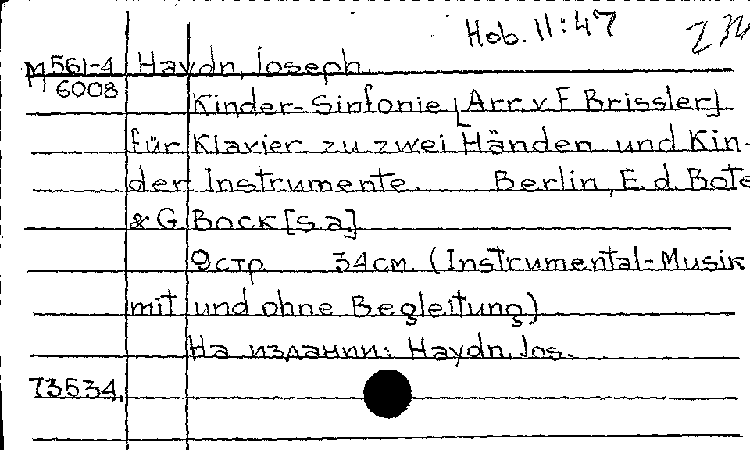 Hob. 11:47
M 561-4 Haydn, Joseph.
6008
Kinder-Sinfonie [Arr. v. F. Brissler]
für Klavier zu zwei Händen und Kin-
der Instrumente. Berlin, E. d. Bote
& G. Bock [s. a.]
9 стр. 34 см. (Instrumental-Musik
mit und ohne Begleitung)
На издании: Haydn, Jos.
73534.